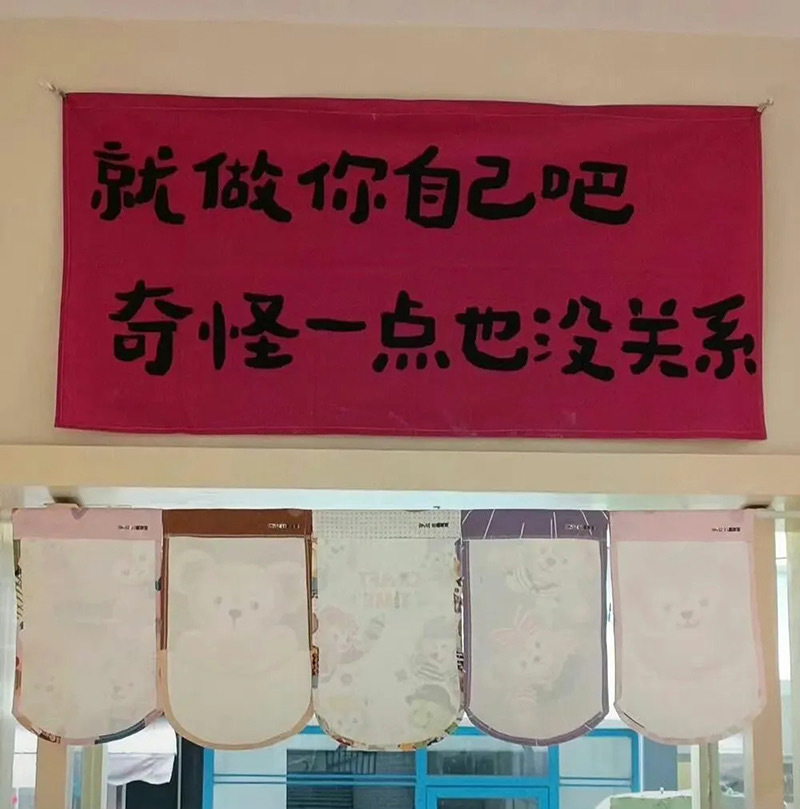 就做你自己吧
奇怪一点也没关系